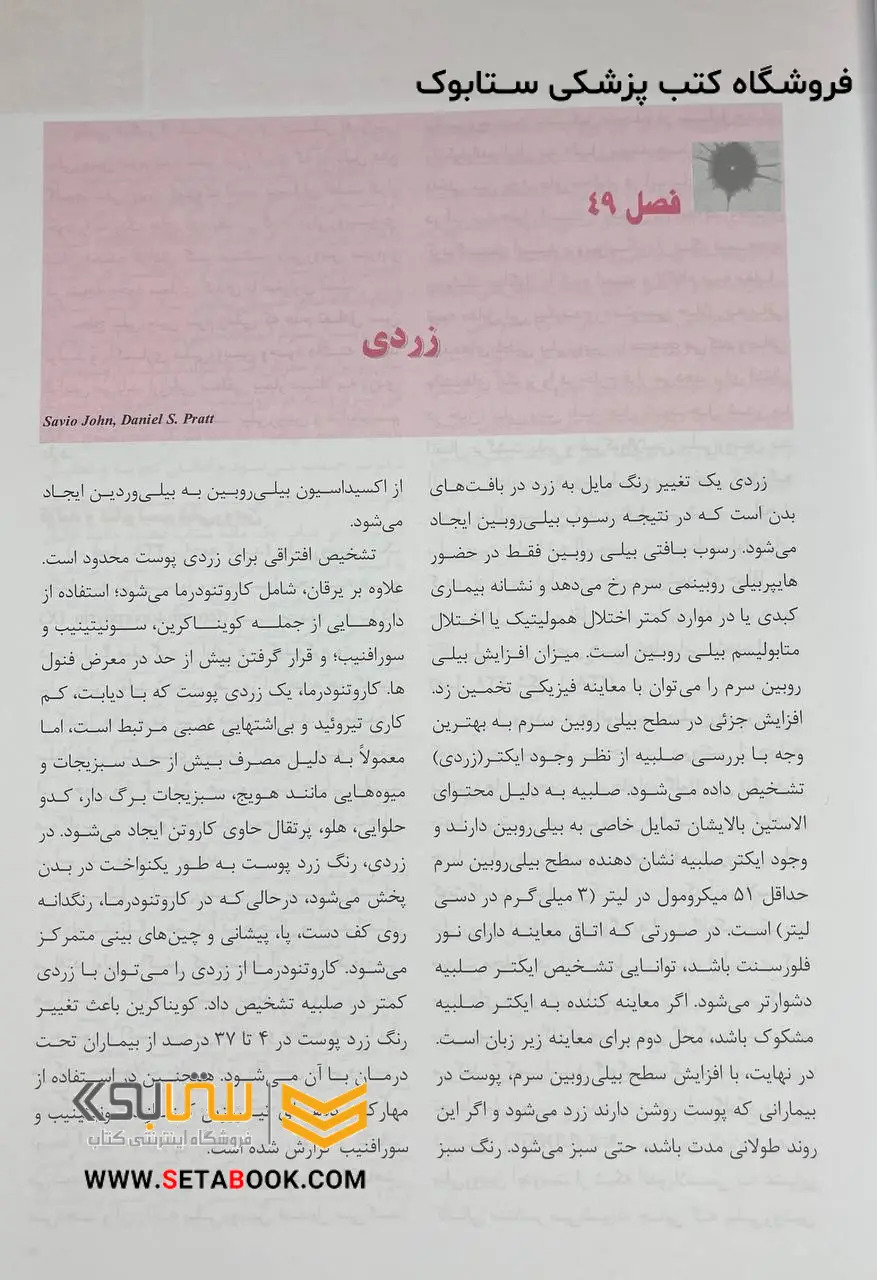 فروشگاه کتب پزشکی ستابوک
فصل ۴۹
زردی
Savio John, Daniel S. Pratt
زردی یک تغییر رنگ مایل به زرد در بافت‌های
بدن است که در نتیجه رسوب بیلی‌روبین ایجاد
می‌شود. رسوب بافتی بیلی روبین فقط در حضور
هایپربیلی روبینمی سرم رخ می‌دهد و نشانه بیماری
کبدی یا در موارد کمتر اختلال همولیتیک یا اختلال
متابولیسم بیلی روبین است. میزان افزایش بیلی
روبین سرم را می‌توان با معاینه فیزیکی تخمین زد.
افزایش جزئی در سطح بیلی روبین سرم به بهترین
وجه با بررسی صلبیه از نظر وجود ایکتر(زردی)
تشخیص داده می‌شود. صلبیه به دلیل محتوای
الاستین بالایشان تمایل خاصی به بیلی‌روبین دارند و
وجود ایکتر صلبیه نشان دهنده سطح بیلی‌روبین سرم
حداقل ۵۱ میکرومول در لیتر (۳ میلی‌گرم در دسی
لیتر) است. در صورتی که اتاق معاینه دارای نور
فلورسنت باشد، توانایی تشخیص ایکتر صلبیه
دشوارتر می‌شود. اگر معاینه کننده به ایکتر صلبیه
مشکوک باشد، محل دوم برای معاینه زیر زبان است.
در نهایت، با افزایش سطح بیلی‌روبین سرم، پوست در
بیمارانی که پوست روشن دارند زرد می‌شود و اگر این
روند طولانی مدت باشد، حتی سبز می‌شود. رنگ سبز
از اکسیداسیون بیلی‌روبین به بیلی‌وردین ایجاد
می‌شود.
تشخیص افتراقی برای زردی پوست محدود است.
علاوه بر یرقان، شامل کاروتنودرما می‌شود؛ استفاده از
داروهایی از جمله کویناکرین، سونیتینیب و
سورافنیب؛ و قرار گرفتن بیش از حد در معرض فنول
ها. کاروتنودرما، یک زردی پوست که با دیابت، کم
کاری تیروئید و بی‌اشتهایی عصبی مرتبط است، اما
معمولاً به دلیل مصرف بیش از حد سبزیجات و
میوه‌هایی مانند هویج، سبزیجات برگ دار، کدو
حلوایی، هلو، پرتقال حاوی کاروتن ایجاد می‌شود. در
زردی، رنگ زرد پوست به طور یکنواخت در بدن
پخش می‌شود، درحالی‌که در کاروتنودرما، رنگدانه
روی کف دست، پا، پیشانی و چین‌های بینی متمرکز
می‌شود. کاروتنودرما از زردی را می‌توان با زردی
کمتر در صلبیه تشخیص داد. کویناکرین باعث تغییر
رنگ زرد پوست در ۴ تا ۳۷ درصد از بیماران تحت
درمان با آن می‌شود. همچنین در استفاده از
و
سورافنیب گزارش شده است.
ستابوک
فروشگاه اینترنتی کتاب
WWW.SETABOOK.COM